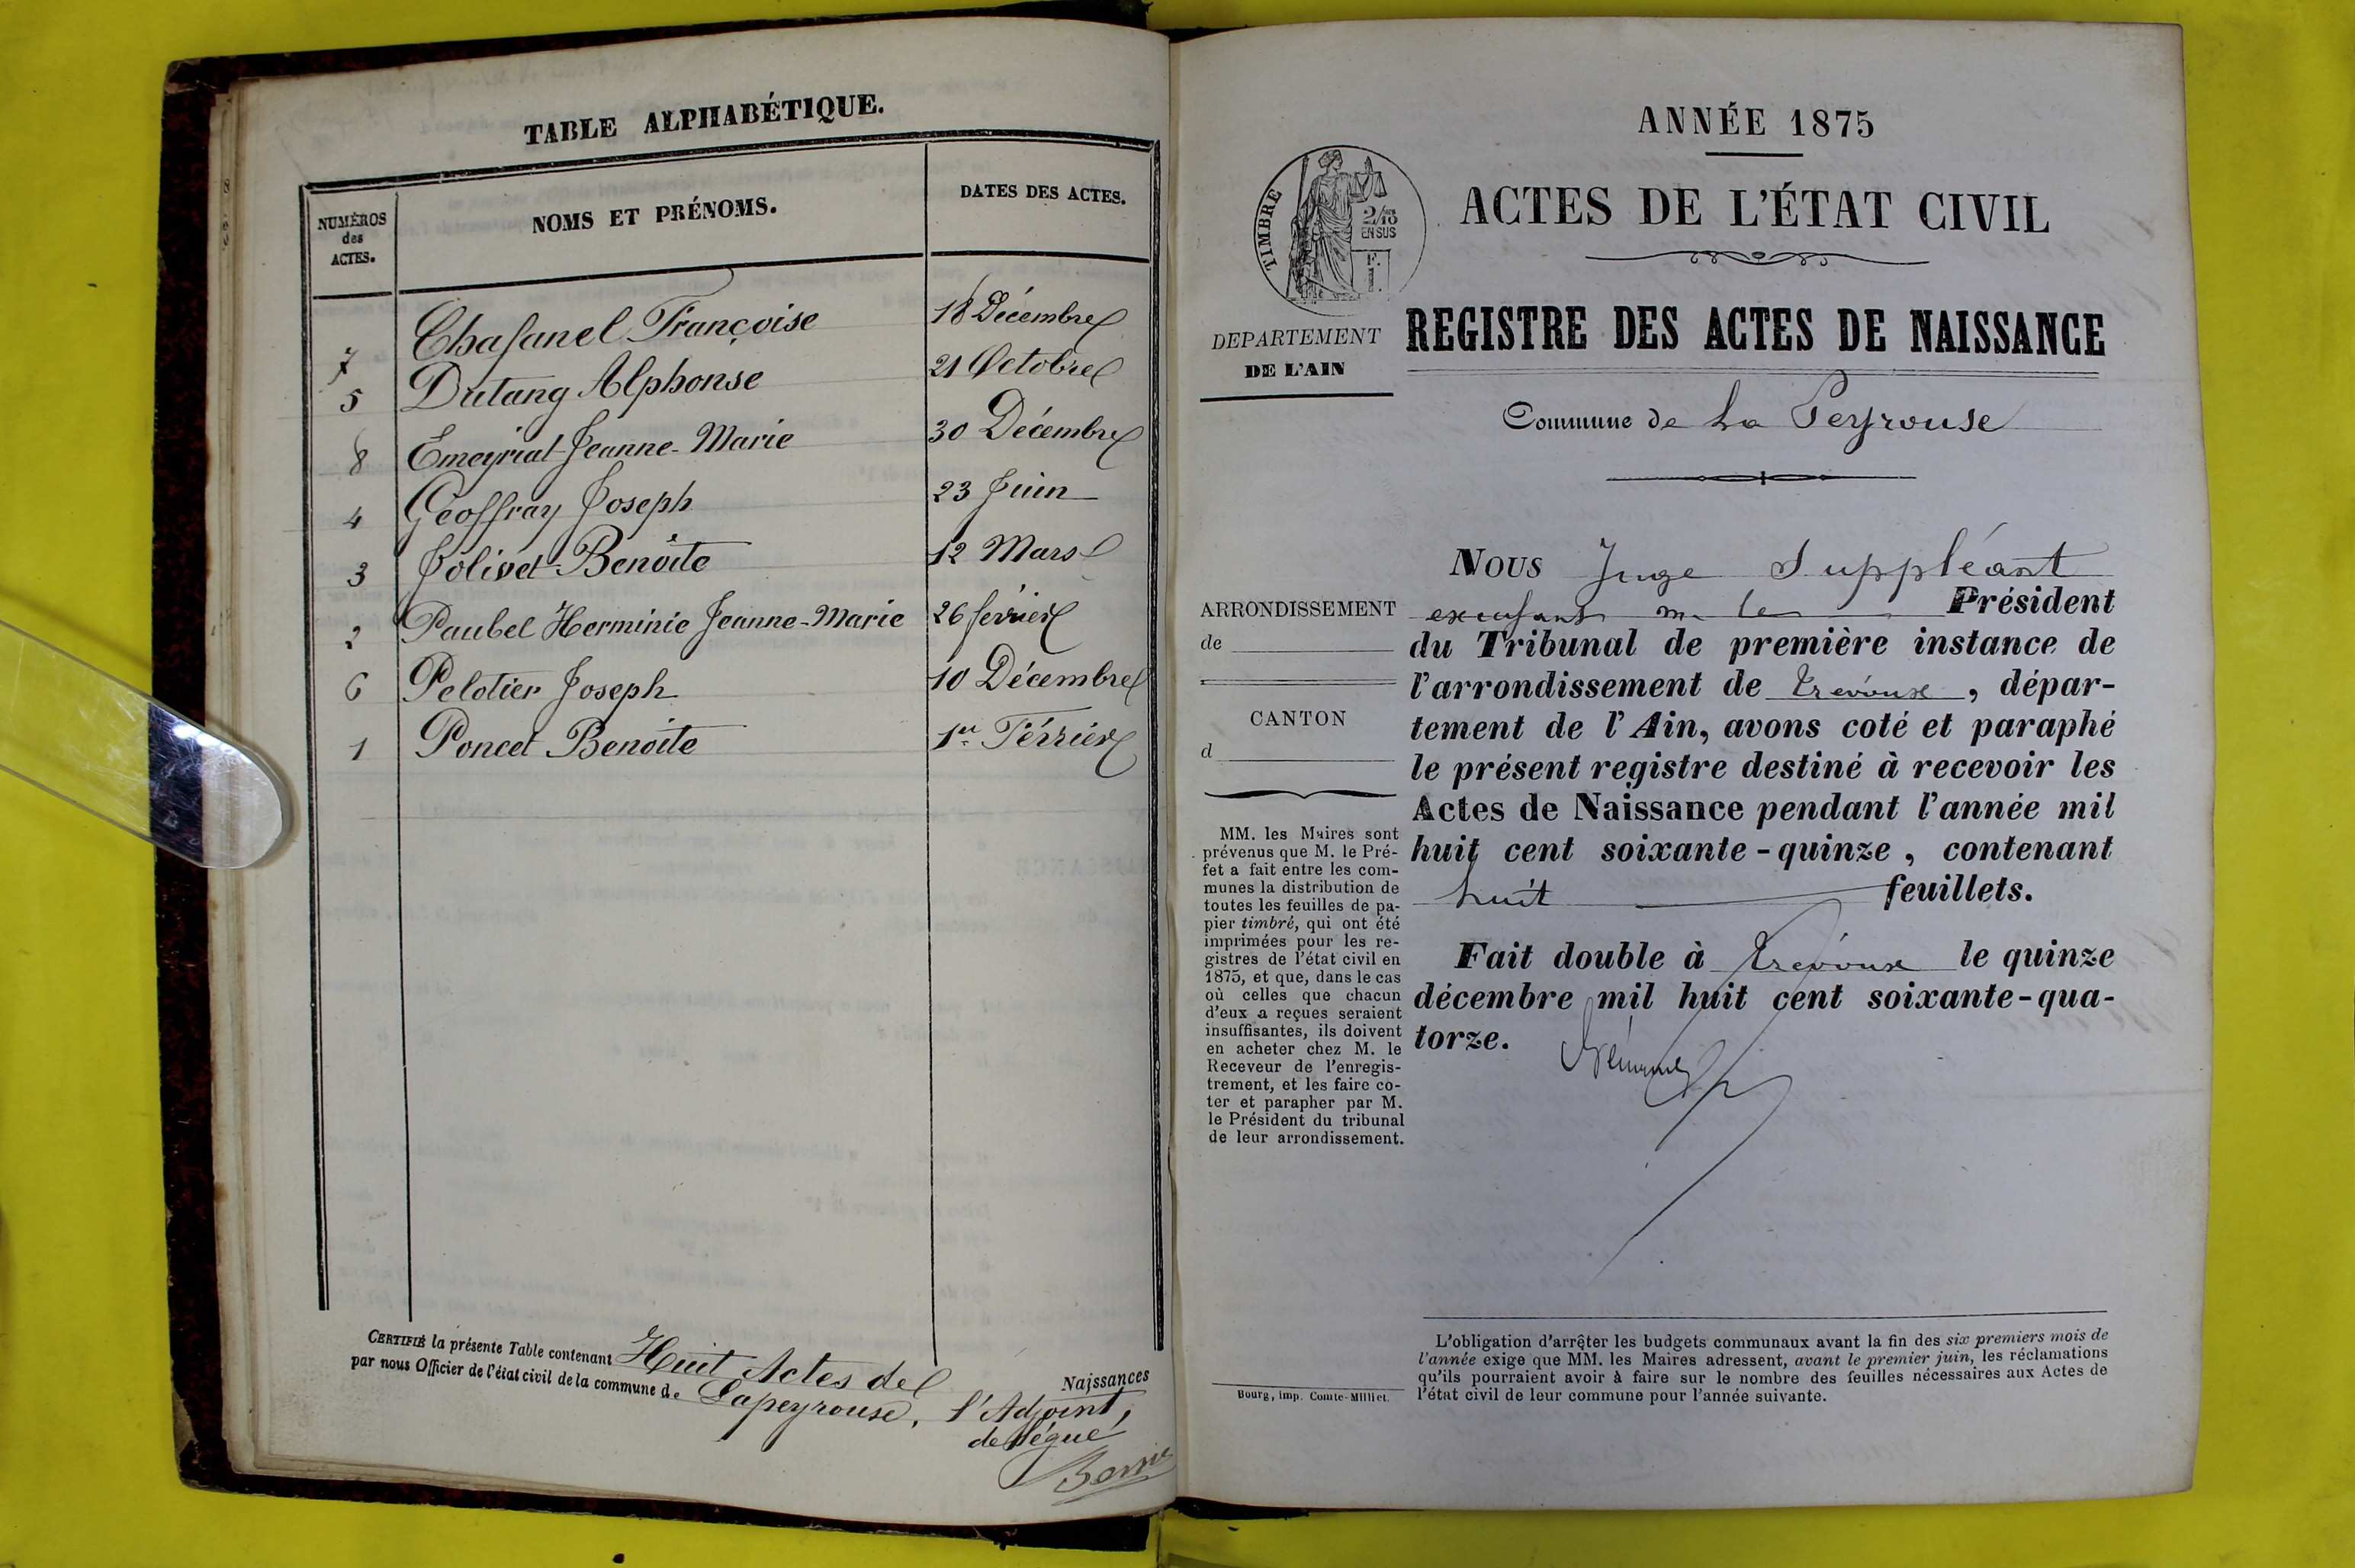 TABLE ALPHABÉTIQUE.
NUMÉROS
des
ACTES.
NOMS ET PRÉNOMS.
DATES DES ACTES.
7 Chasanel Françoise 18 Décembre
5 Dutang Alphonse 21 Octobre
8 Emeyriat Jeanne-Marie 30 Décembre
4 Geoffray Joseph 23 Juin
3 Jolivet Benoîte 12 Mars
2 Paubel Herminie Jeanne-Marie 26 février
6 Pelotier Joseph 10 Décembre
1 Poncet Benoîte 1er Février
CERTIFIÉ la présente Table contenant Huit Actes de Naissances
par nous Officier de l'état civil de la commune de Lapeyrouse, l'Adjoint,
délégué
ANNÉE 1875
ACTES DE L'ÉTAT CIVIL
TIMBRE
2/10
EN SUS
F.
1.
DEPARTEMENT
DE L'AIN
REGISTRE DES ACTES DE NAISSANCE
Commune de La Peyrouse
ARRONDISSEMENT
de
CANTON
d
MM. les Maires sont
prévenus que M. le Pré-
fet a fait entre les com-
munes la distribution de
toutes les feuilles de pa-
pier timbré, qui ont été
imprimées pour les re-
gistres de l'état civil en
1875, et que, dans le cas
où celles que chacun
d'eux a reçues seraient
insuffisantes, ils doivent
en acheter chez M. le
Receveur de l'enregis-
trement, et les faire co-
ter et parapher par M.
le Président du tribunal
de leur arrondissement.
Bourg, imp. Comte-Milliet.
NOUS Juge Suppléant
m. le Président
du Tribunal de première instance de
l'arrondissement de Trévoux, dépar-
tement de l'Ain, avons coté et paraphé
le présent registre destiné à recevoir les
Actes de Naissance pendant l'année mil
huit cent soixante-quinze, contenant
huit feuillets.
Fait double à Trévoux le quinze
décembre mil huit cent soixante-qua-
torze.
L'obligation d'arrêter les budgets communaux avant la fin des six premiers mois de
l'année exige que MM. les Maires adressent, avant le premier juin, les réclamations
qu'ils pourraient avoir à faire sur le nombre des feuilles nécessaires aux Actes de
l'état civil de leur commune pour l'année suivante.